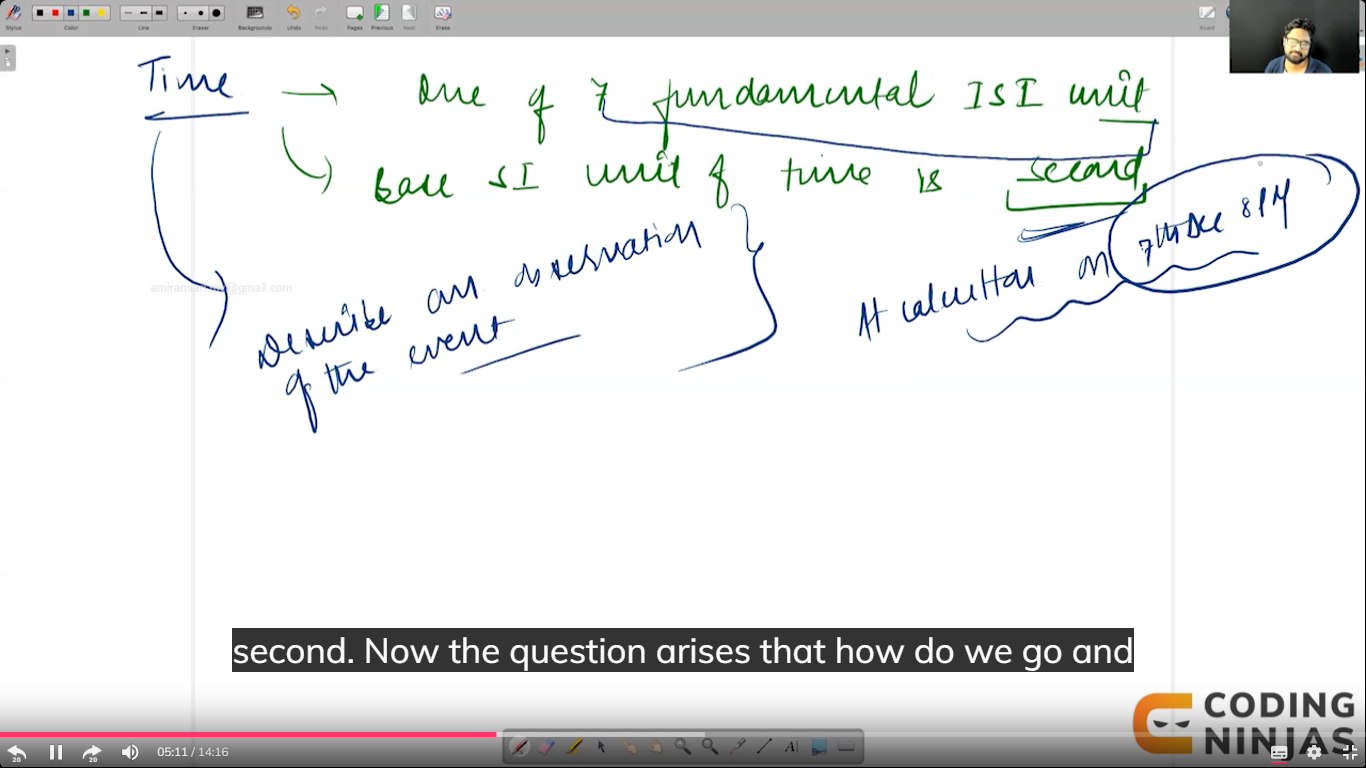 Stylus Color Line Eraser Backgrounds Undo Redo Pages Previous Next Erase Board
Time → One of 7 fundamental ISI unit
Base SI unit of time is second
Describe an observation
of the event
At calcutta on 7th Dec 8 PM
second. Now the question arises that how do we go and
CODING
NINJAS
20 20 05:11 / 14:16